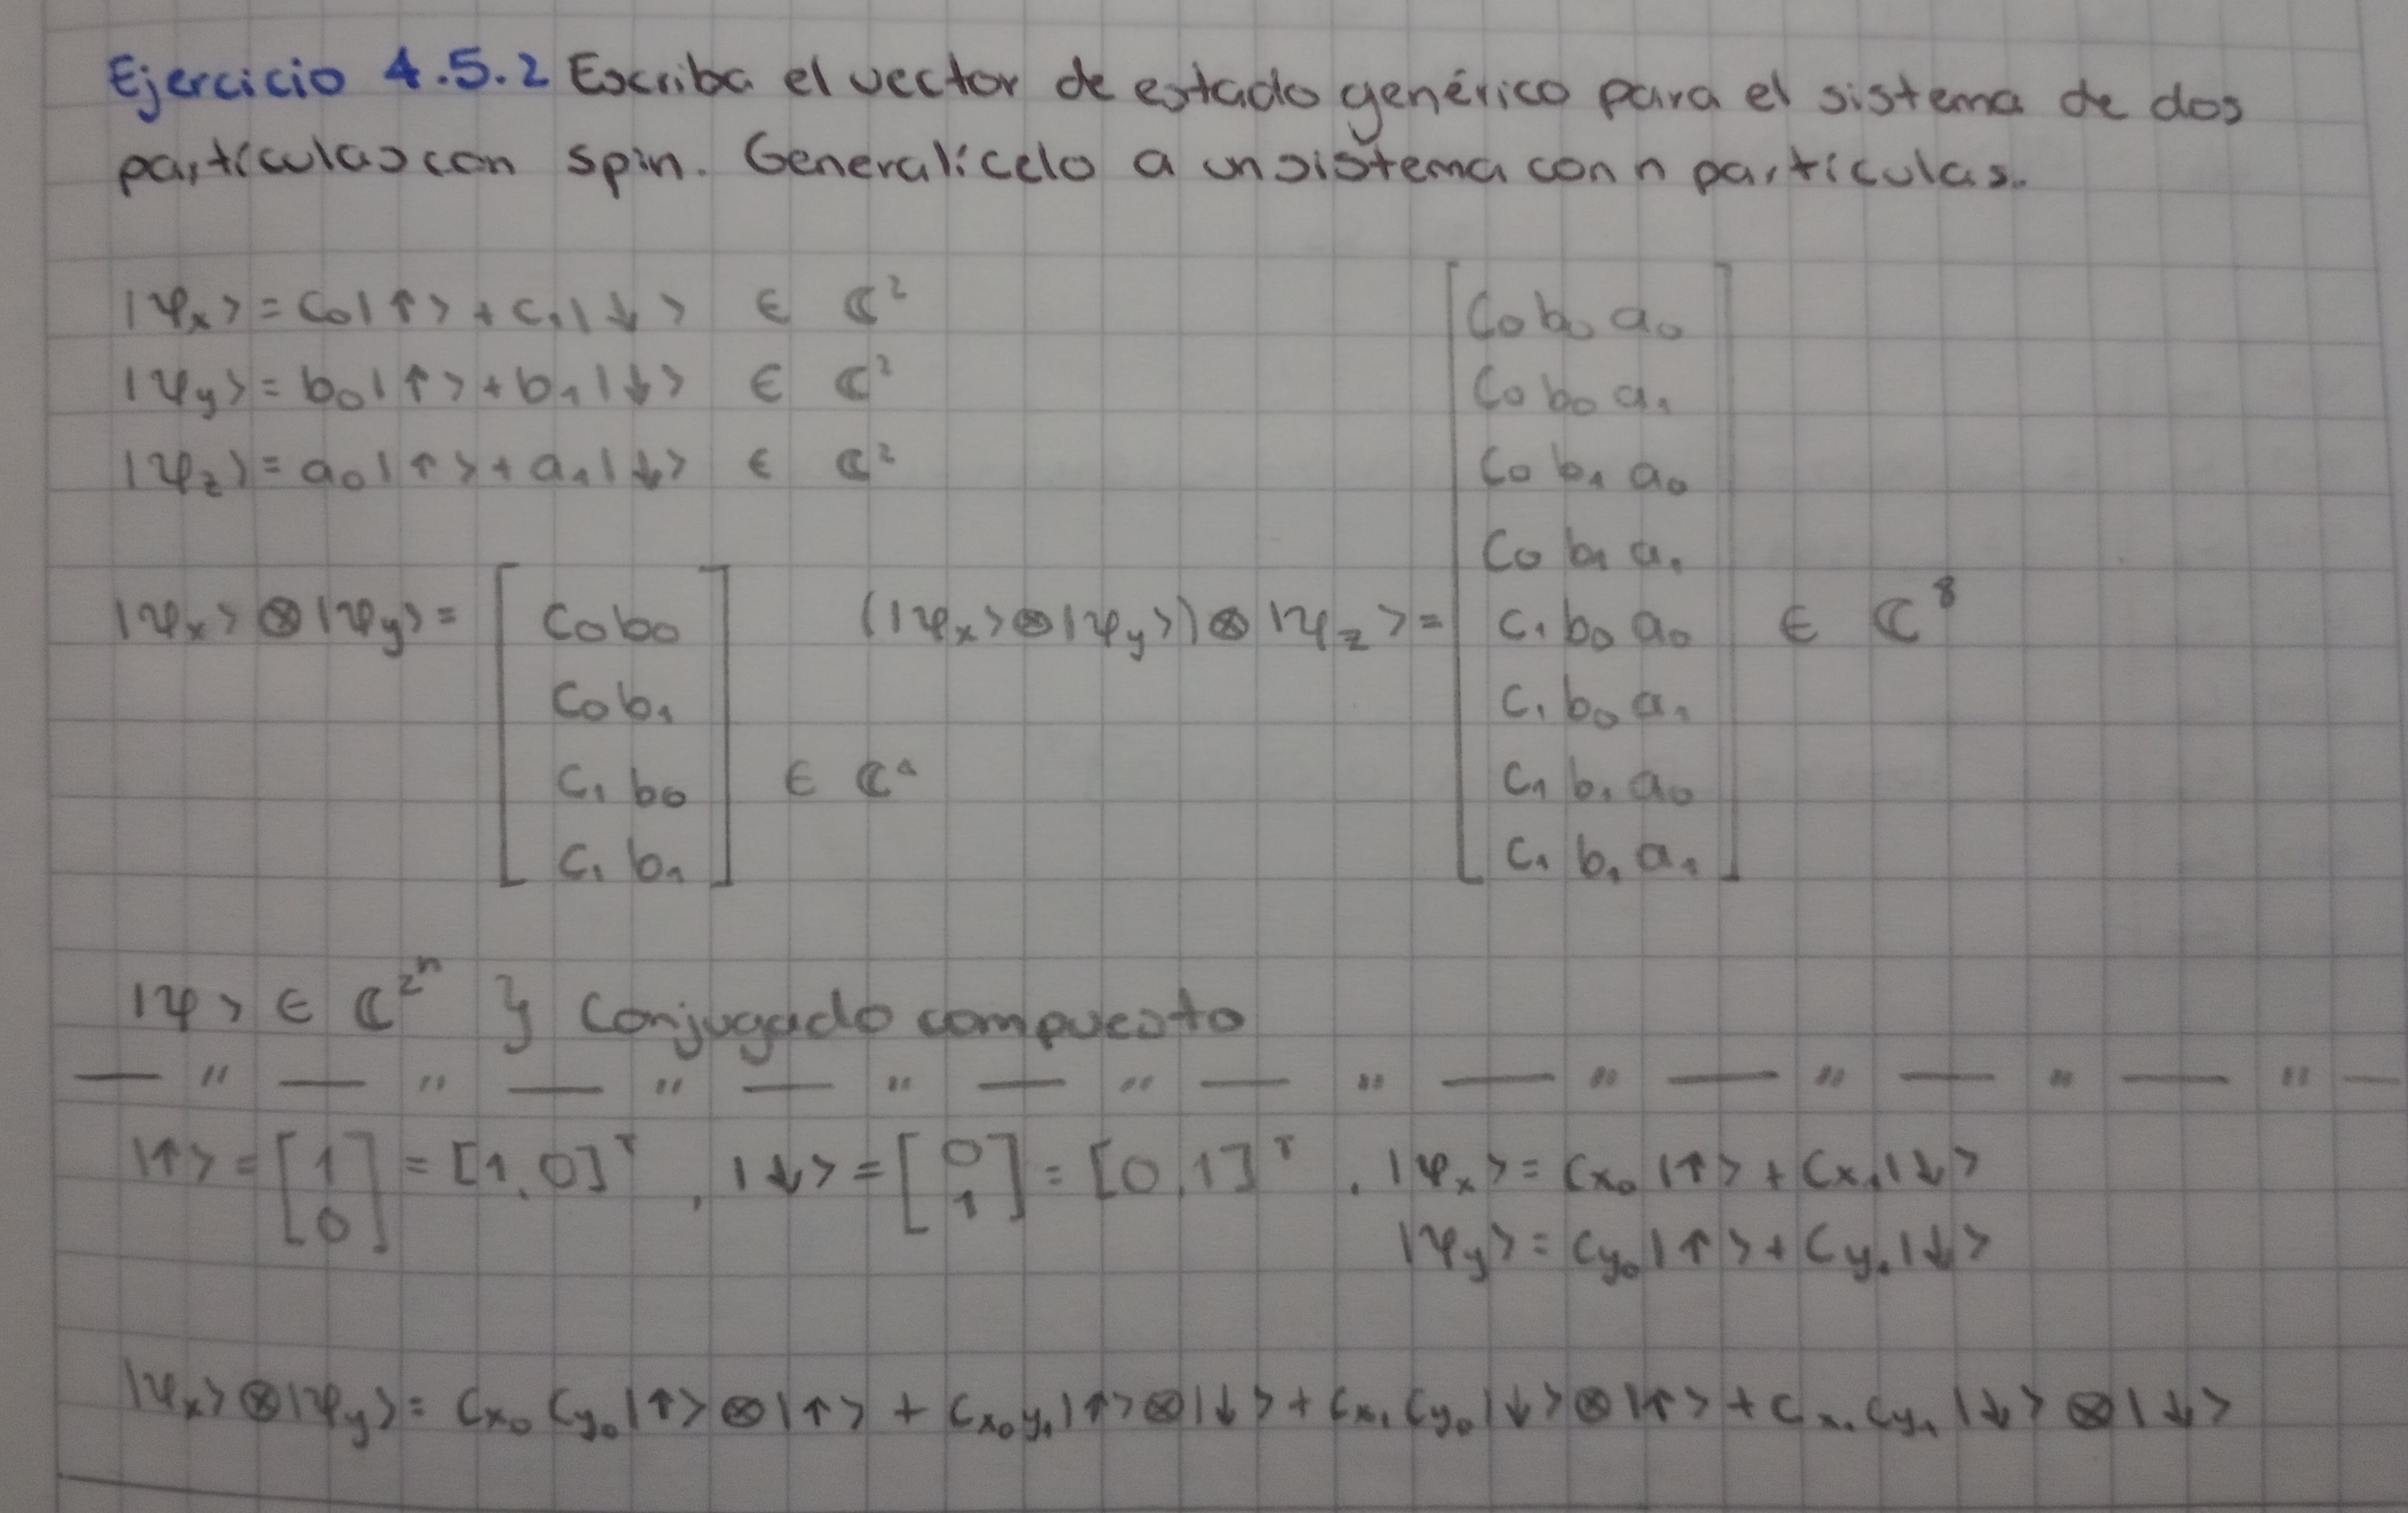 Ejercicio 4.5.2 Escriba el vector de estado genérico para el sistema de dos
partículas con spin. Generalícelo a un sistema con n partículas.
|ψx> = c0|↑> + c1|↓> ∈ ℂ²
|ψy> = b0|↑> + b1|↓> ∈ ℂ²
|ψz> = a0|↑> + a1|↓> ∈ ℂ²
|ψx> ⊗ |ψy> =
[c0 b0
c0 b1
c1 b0
c1 b1] ∈ ℂ⁴
(|ψx> ⊗ |ψy>) ⊗ |ψz> =
[c0 b0 a0
c0 b0 a1
c0 b1 a0
c0 b1 a1
c1 b0 a0
c1 b0 a1
c1 b1 a0
c1 b1 a1] ∈ ℂ⁸
|ψ> ∈ ℂ^2^n } Conjugado compuesto
— " — " — " — " — " — " — " — " — " — " —
|↑> = [1 0] = [1,0]ᵀ , |↓> = [0 1] = [0,1]ᵀ . |ψx> = cx0|↑> + cx1|↓>
|ψy> = cy0|↑> + cy1|↓>
|ψx> ⊗ |ψy> = cx0 cy0|↑> ⊗ |↑> + cx0y1|↑> ⊗ |↓> + cx1 cy0|↓> ⊗ |↑> + cx1 cy1|↓> ⊗ |↓>